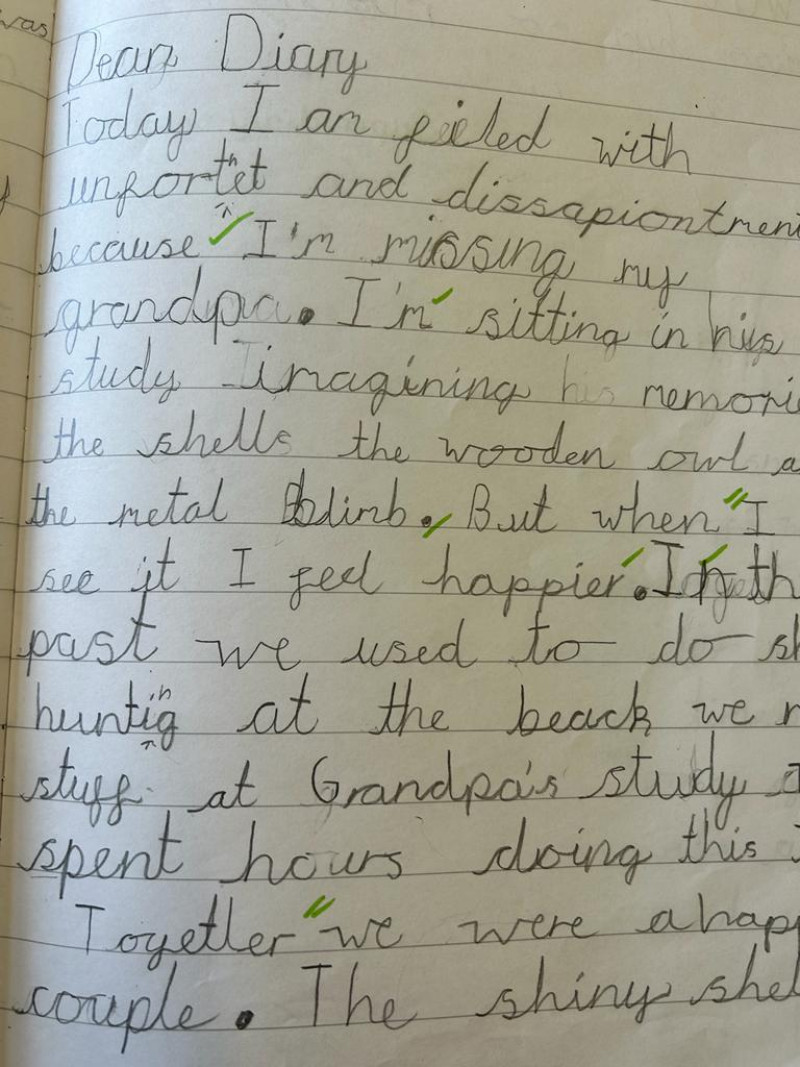 was
Dear Diary
Today I am feeled with
unfortet and dissapiontment
because I'm missing my
grandpa. I'm sitting in his
study imagining his memori
the shells the wooden owl a
the metal blimb. But when I
see it I feel happier. In th
past we used to do sh
huntinig at the beack we
stuff at Grandpa's study
spent hours doing this
Togetler we were a hap
couple. The shiny shel